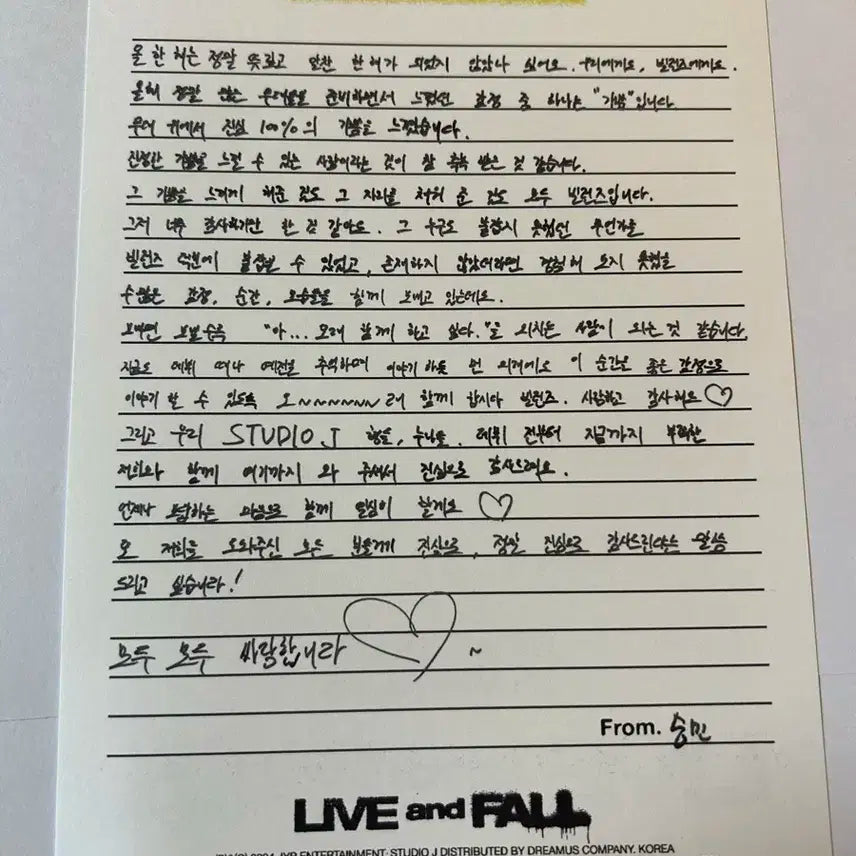 올 한 해는 정말 뜻깊고 알찬 한 해가 되었지 않았나 싶어요. 우리에게도, 빌런즈에게도.
올해 정말 많은 무대들을 준비하면서 느꼈던 감정 중 하나는 "기쁨"입니다.
무대 위에서 진심 100%의 기쁨을 느꼈습니다.
진정한 기쁨을 느낄 수 있는 사람이라는 것이 참 축복 받은 것 같습니다.
그 기쁨을 느끼게 해준 것도 그 자리를 채워 준 것도 모두 빌런즈입니다.
그저 너무 감사하기만 한 것 같아요. 그 누구도 불잡지 못했던 무언가를
빌런즈 덕분에 불잡을 수 있었고, 존재하지 않았더라면 경험해 보지 못했을
수많은 감정, 순간, 모습들을 함께 보내고 있는데요.
보내면 보낼수록 "아... 오래 함께 하고 싶다."를 외치는 사람이 되는 것 같습니다.
지금도 데뷔 때나 예전을 추억하며 이야기 하듯 먼 미래에도 이 순간을 좋은 감정으로
이야기 할 수 있도록 오~~~~~~래 함께 합시다 빌런즈. 사랑하고 감사해요♡
그리고 우리 STUDIO J 형들, 누나들. 데뷔 전부터 지금까지 부족한
저희와 함께 여기까지 와 주셔서 진심으로 감사드려요.
언제나 보답하는 마음으로 함께 열심히 할게요 ♡
또 저희를 도와주신 모든 분들께 진심으로, 정말 진심으로 감사드린다는 말씀
드리고 싶습니다!
모두 모두 싸랑합니다 ♡ ~
From. 승민
LIVE and FALL
2024 JYP ENTERTAINMENT. STUDIO J DISTRIBUTED BY DREAMUS COMPANY. KOREA